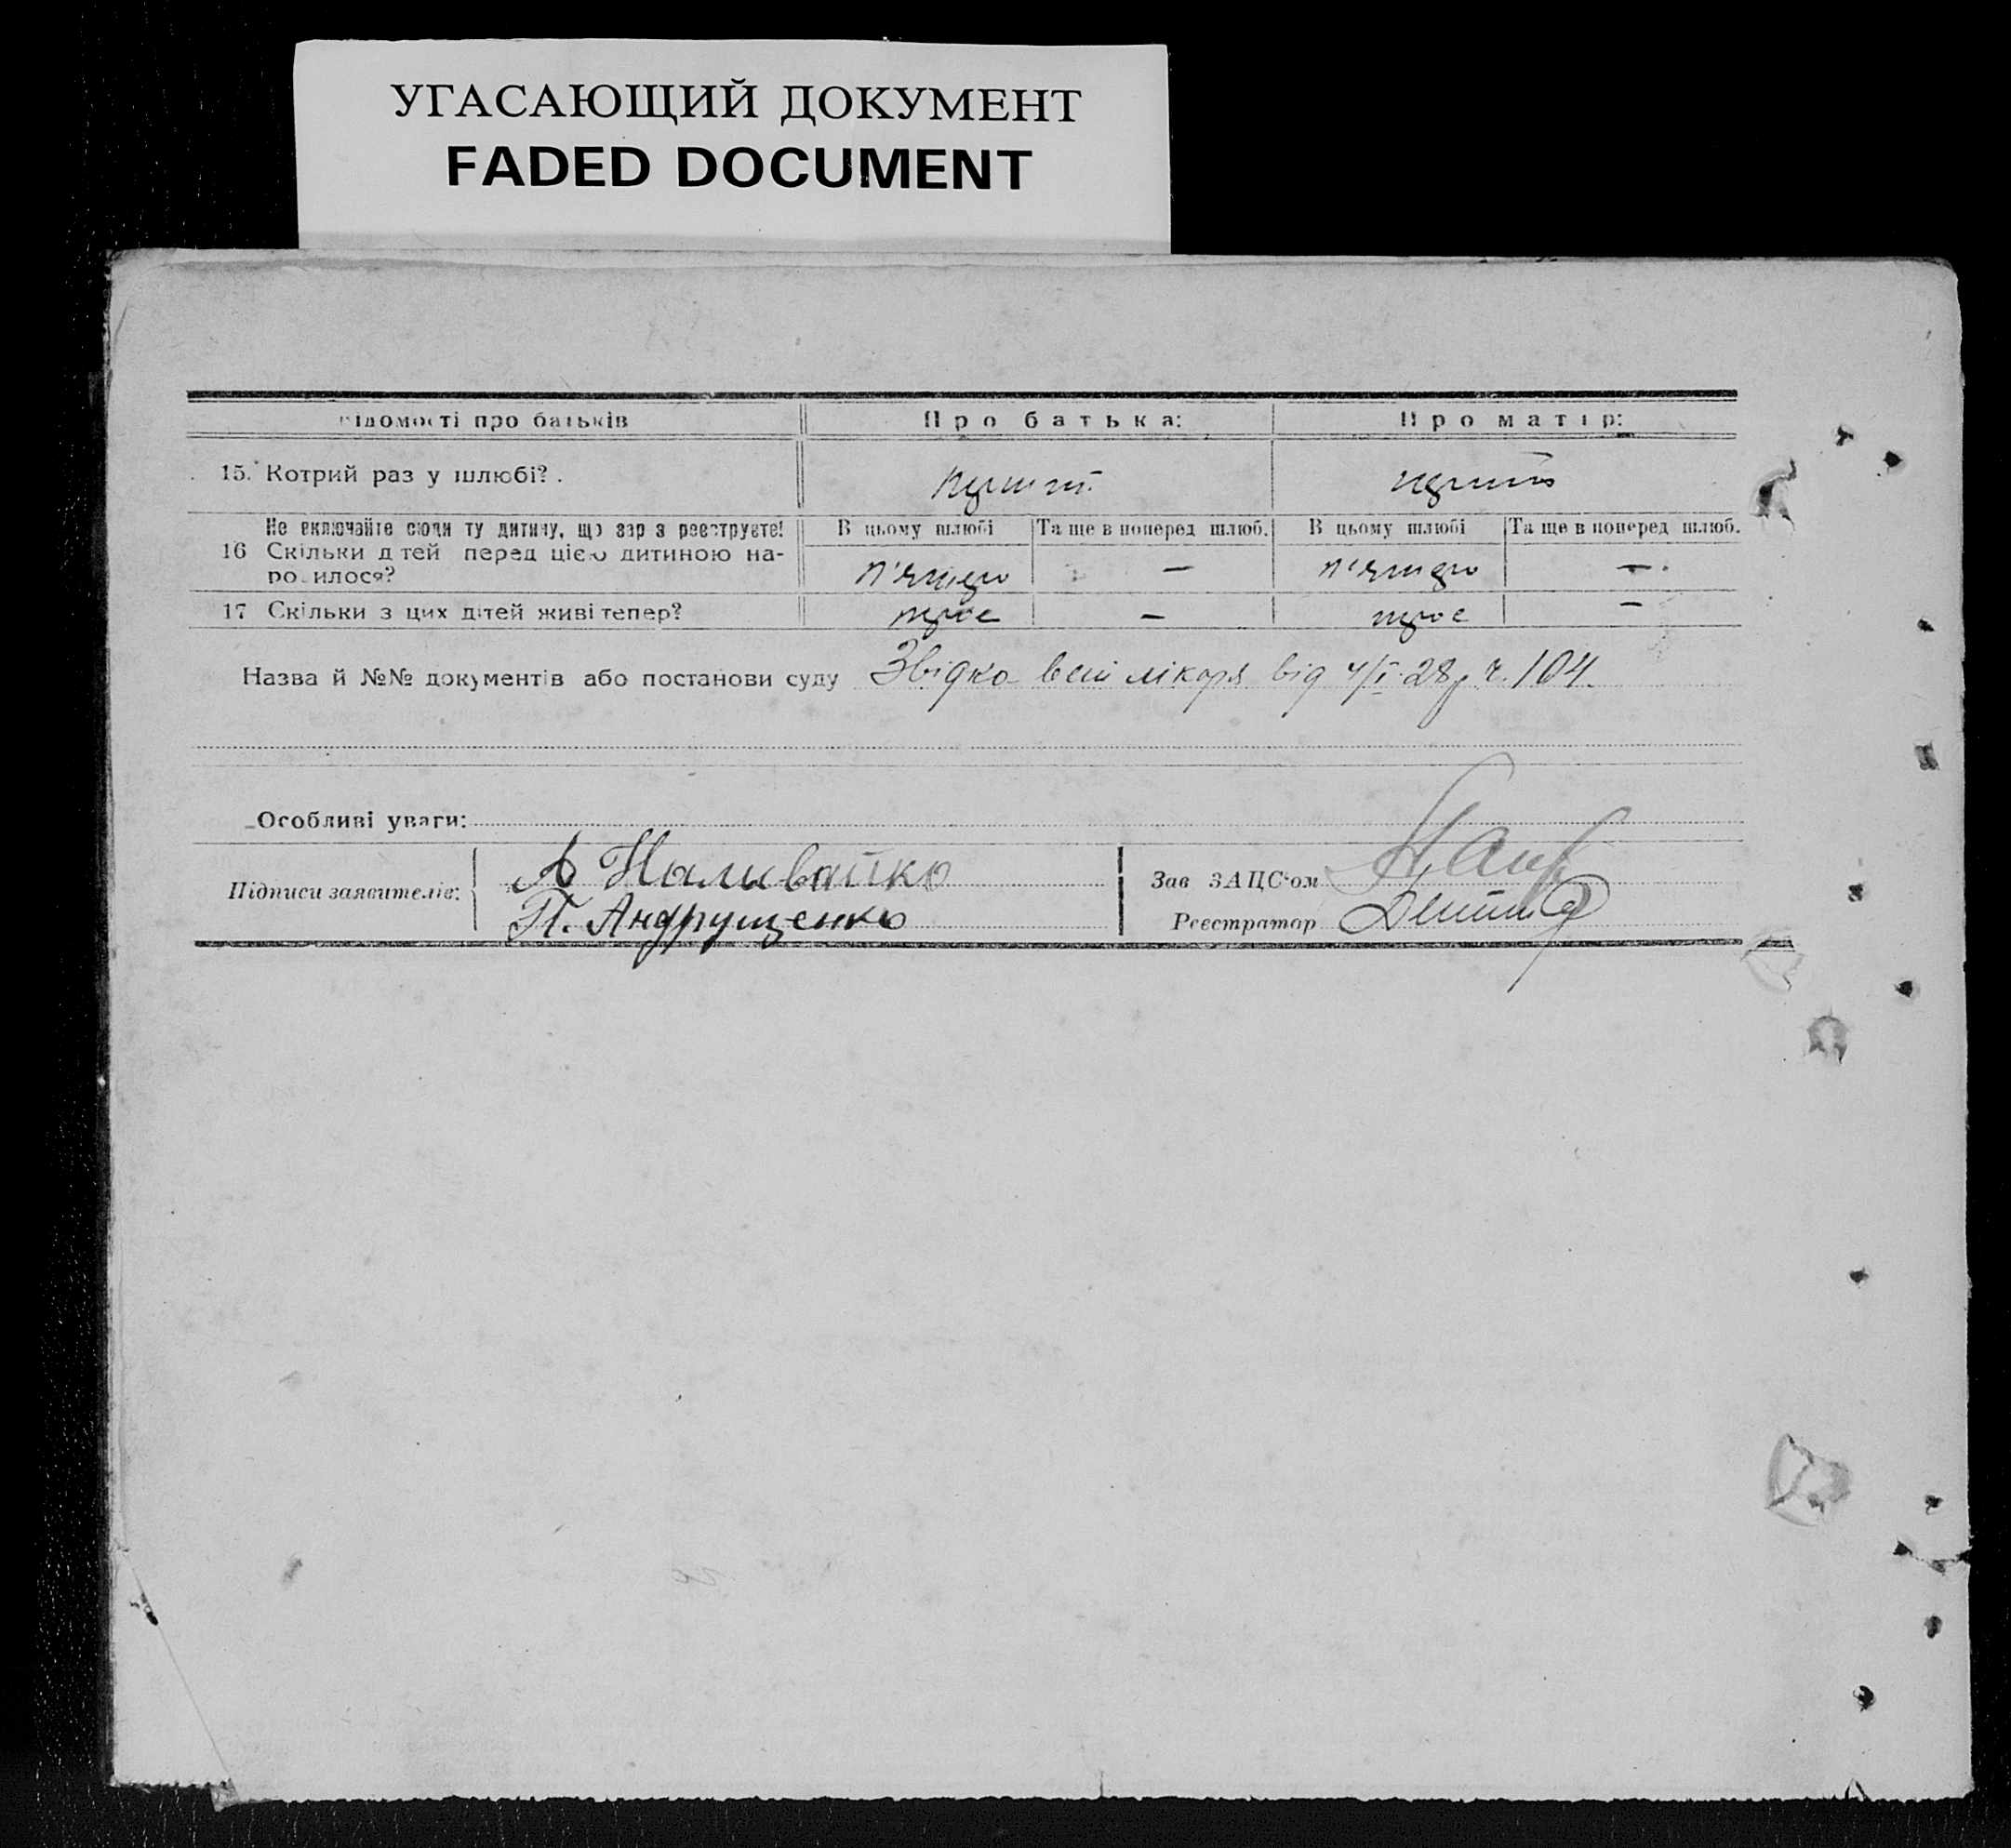 УГАСАЮЩИЙ ДОКУМЕНТ
FADED DOCUMENT
відомості про батьків Про батька: Про матір:
15. Котрий раз у шлюбі?. перший
Не включайте сюди ту дитину, що зар з реєструєте! В цьому шлюбі Та ще в поперед шлюб. В цьому шлюбі Та ще в поперед шлюб.
16 Скільки д тей перед цією дитиною на-
ро илося? п'ятеро — п'ятеро —
17 Скільки з цих дітей живі тепер? троє — троє —
Назва й №№ документів або постанови суду Звідка лікаря від 4/I-28р ч. 104.
Особливі уваги:
Підписи заявителів: А Наливайко
П. Андрущенко
Зав ЗАЦС'ом
Реєстратор